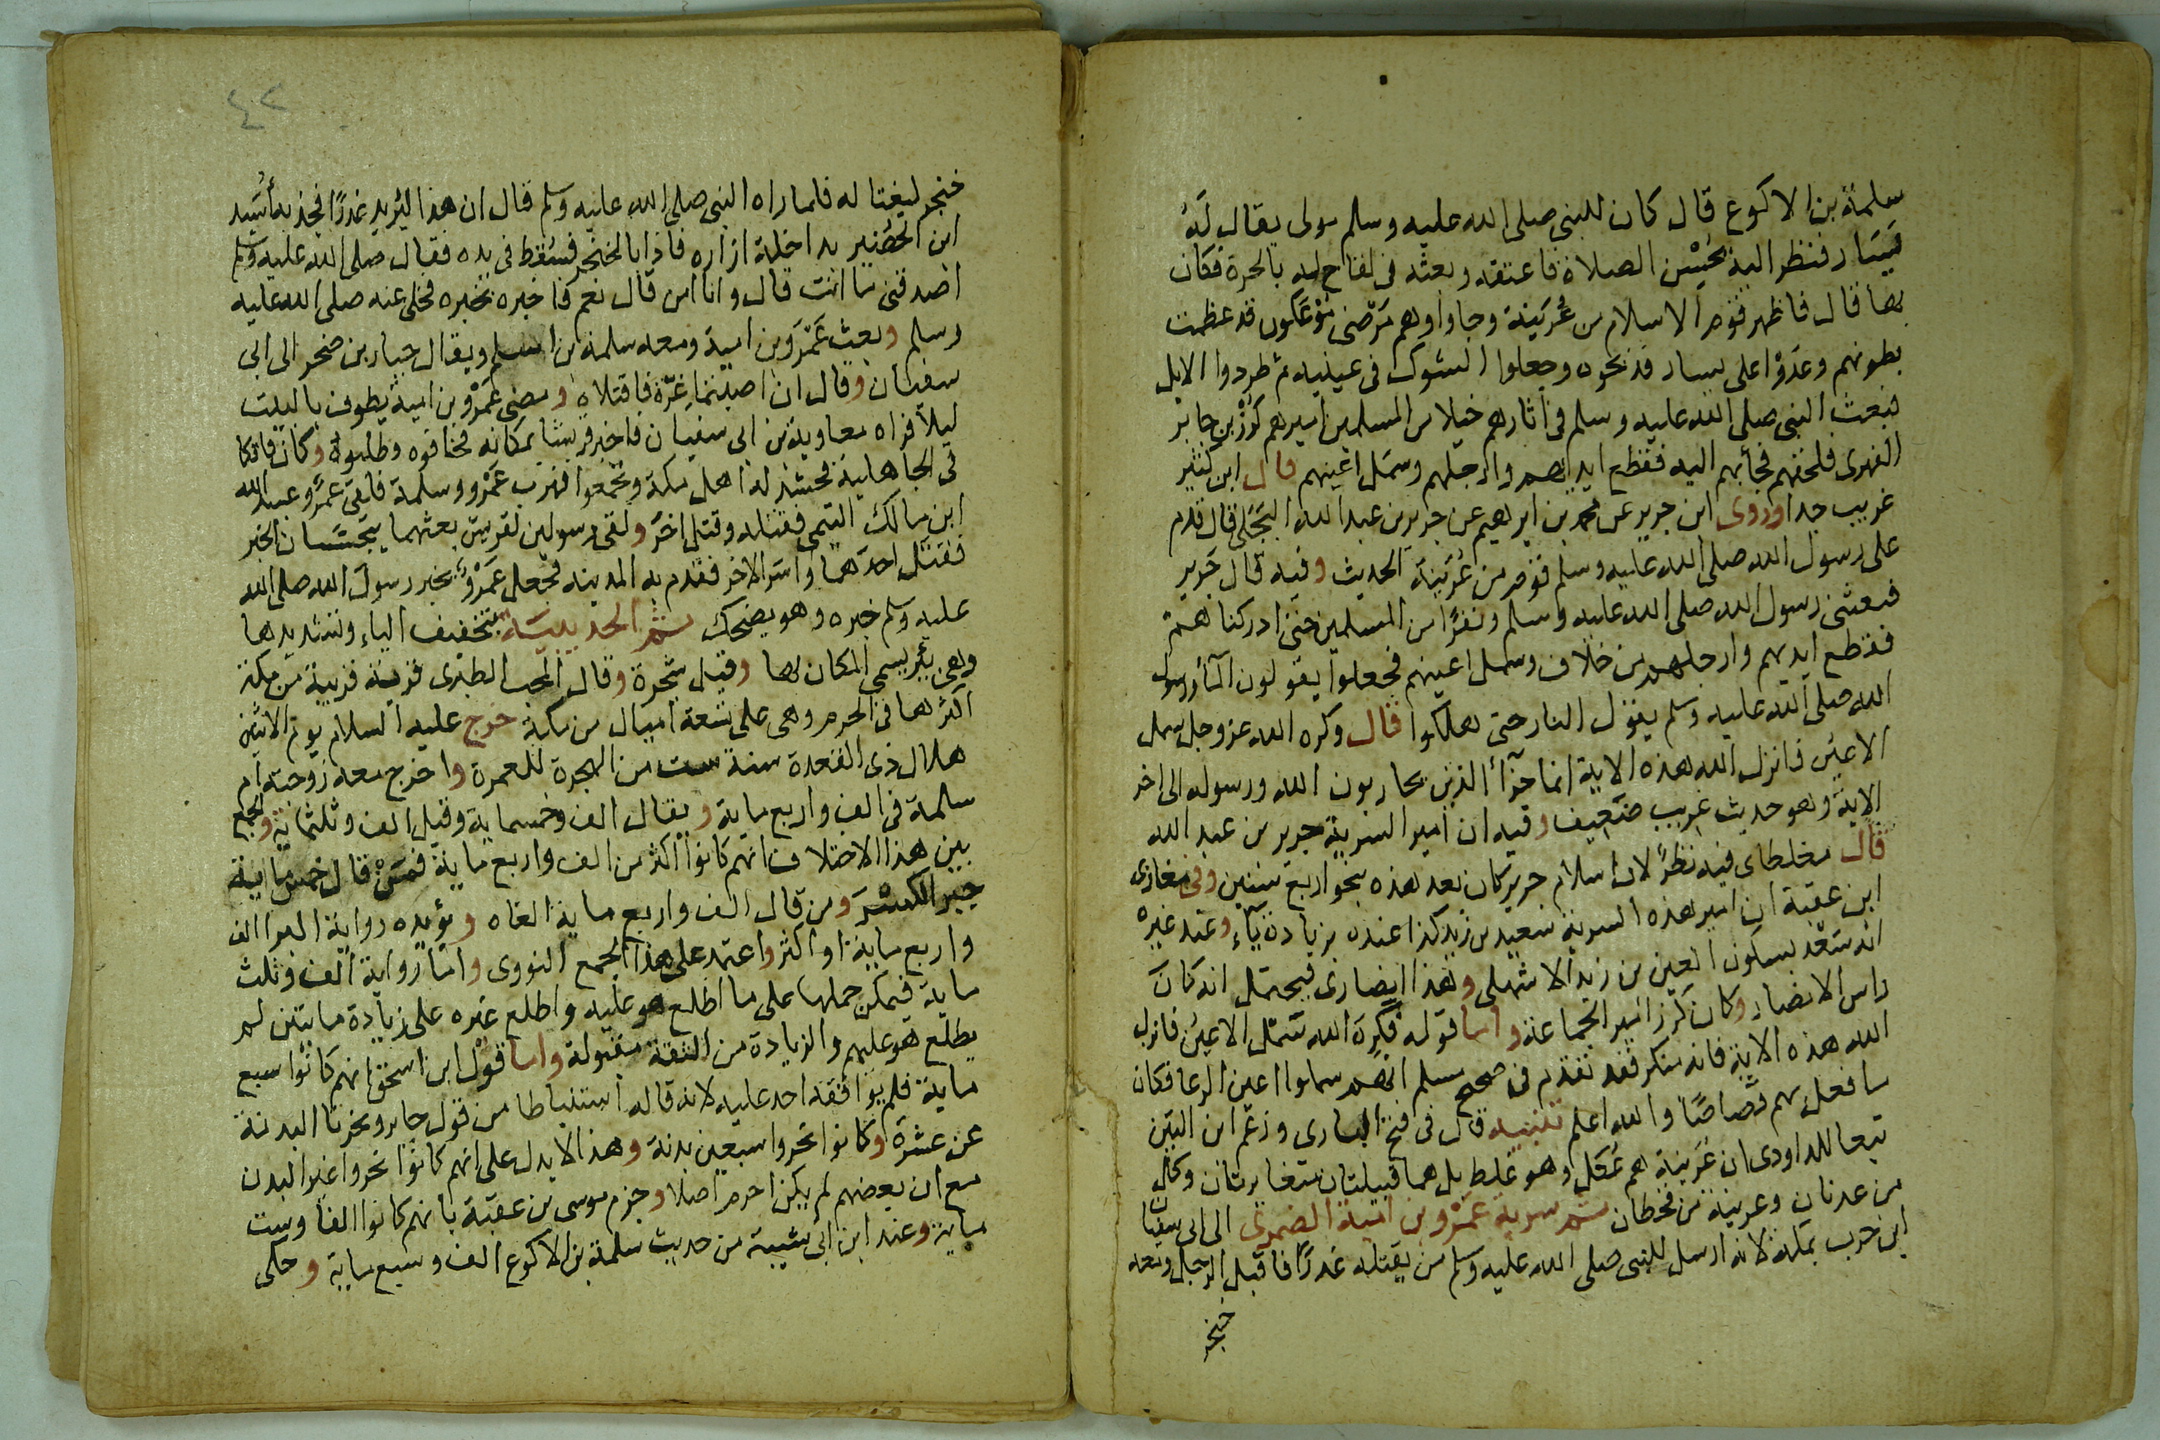 سلمة بن الاكوع قال كان للنبي صلى الله عليه وسلم مولى يقال لَهُ
يَسَار فنظر اليه يحسن الصلاة فاعتقه وبعثه في لقاح له بالحرة فكان
بها قال فاظهر قوم الاسلام من عُرَينة وجاوا وهم مَرْضى مَوْعكون قد عظمت
بطونهم وعَدَوْا على يسار فذبحوه وجعلوا الشوك في عينيه ثم طردوا الابل
فبعث النبي صلى الله عليه وسلم في اثارهم خيلا من المسلمين اميرهم كُرْز بن جابر
الفهرى فلحقهم فجأبهم اليه فقطع ايديهم وارجلهم وسمل اعينهم قال ابن كثير
غريب جدا وروى ابن جرير عن محمد بن ابرهيم عن جرير بن عبد الله البَجَلى قال قدم
على رسول الله صلى الله عليه وسلم قوم من عُرَينة الحديث وفيه قال جرير
فبعثنى رسول الله صلى الله عليه وسلم ونفرًا من المسلمين حتى ادركناهم
فقطع ايديهم وارجلهم من خلاف وسمل اعينهم فجعلوا يقولون المآء ورسول
الله صلى الله عليه وسلم يقول النار حتى هلكوا قال وكره الله عز وجل سمل
الاعين فانزل الله هذه الاية انما جزآأ الذين يحاربون الله ورسوله الى اخر
الاية وهو حديث غريب ضعيف وفيه ان امير السرية جرير بن عبد الله
قال مغلطاى فيه نظرٌ لان اسلام جرير كان بعد هذه بنحو اربع سنين وفى مغازى
ابن عقبة ان امير هذه السرية سعيد بن زيد كذا عنده بزيادة يآء وعند غيره
انه سَعْد بسكون العين بن زيد الاشهلى وهذا انصارى فيحتمل انه كان
راس الانصار وكان كرز امير الجماعة واما قوله فكره الله سَمْل الاعين فانزل
الله هذه الاية فانه منكر فقد تقدم فى صحيح مسلم انهم سملوا اعين الرعا فكان
ما فعل بهم قصاصًا والله اعلم تنبيه قال فى فتح البارى وزعم ابن التين
تبعا للداودى ان عُرَينة هم عُكل وهو غلط بل هما قبيلتان متغايرتان وعُكل
من عدنان وعرينة من قحطان ثم سرية عَمْرو بن امية الضمرى الى ابى سفيان
ابن حرب بمكة لانه ارسل للنبى صلى الله عليه وسلم من يقتله غدرًا فاقبل الرجل ومعه
خنجر
٤٢
خنجر ليغتاله فلما راه النبى صلى الله عليه وسلم قال ان هذا ليُريد غدرًا فجذبه أُسَيد
ابن الحُضير بداخلة ازاره فاذا بالخنجر فسُقط فى يده فقال صلى الله عليه وسلم
اصدقنى ما انت قال وانا امن قال نعم فاخبره بخبره فخلى عنه صلى الله عليه
وسلم وبعث عَمْرَو بن امية ومعه سلمة بن اسلم ويقال جبار بن صخر الى ابى
سفيان وقال ان اصبتما غرّة فاقتلاه ومضى عَمْرو بن امية يطوف بالبيت
ليلاً فراه معاوية بن ابى سفيان فاخبر قريشا بمكانه فخافوه وطلبوه وكان فاتكا
فى الجاهلية فحشد له اهل مكة وتجمعوا فهرب عَمْرو وسلمة فلقى عمرٌو عبيد الله
ابن مالك التيمى فقتله وقتل اخر ولقى رسولين لقريش بعثهما يتجسّسان الخبر
فقتل احدهما واسر الاخر فقدم به المدينة فجعل عَمْرٌو يخبر رسول الله صلى الله
عليه وسلم خبره وهو يضحك ثم الحديبية بتخفيف الياء وتشديدها
وهى بير يسمى المكان بها وقيل شجرة وقال المحب الطبرى قرية قريبة من مكة
اكثرها فى الحرم وهى على تسعة اميال من مكة خرج عليه السلام يوم الاثنين
هلال ذى القعدة سنة ست من الهجرة للعمرة واخرج معه زوجته ام
سلمة فى الف واربع ماية ويقال الف وخمسماية وقيل الف وثلثماية والجمع
بين هذا الاختلاف انهم كانوا اكثر من الف واربع ماية فمَنْ قال خمس ماية
جبر الكسر ومن قال الف واربع ماية الغاه ويؤيده رواية البرا الف
واربع ماية او اكثر واعتمد على هذا الجمع النووى واما رواية الف وثلث
ماية فيمكن حملها على ما اطلع هو عليه واطلع غيره على زيادة مايتين لم
يطلع هو عليهم والزيادة من الثقة مقبولة واما قول ابن اسحق انهم كانوا سبع
ماية فلم يوافقه احد عليه لانه قاله استنباطا من قول جابر ونحرنا البدنة
عن عشرة وكانوا نحروا سبعين بدنة وهذا لا يدل على انهم كانوا نحروا غير البدن
مع ان بعضهم لم يكن احرم اصلا وجزم موسى بن عقبة بانهم كانوا الفا وست
ماية وعند ابن ابى شيبة من حديث سلمة بن الاكوع الف وسبع ماية وحكى